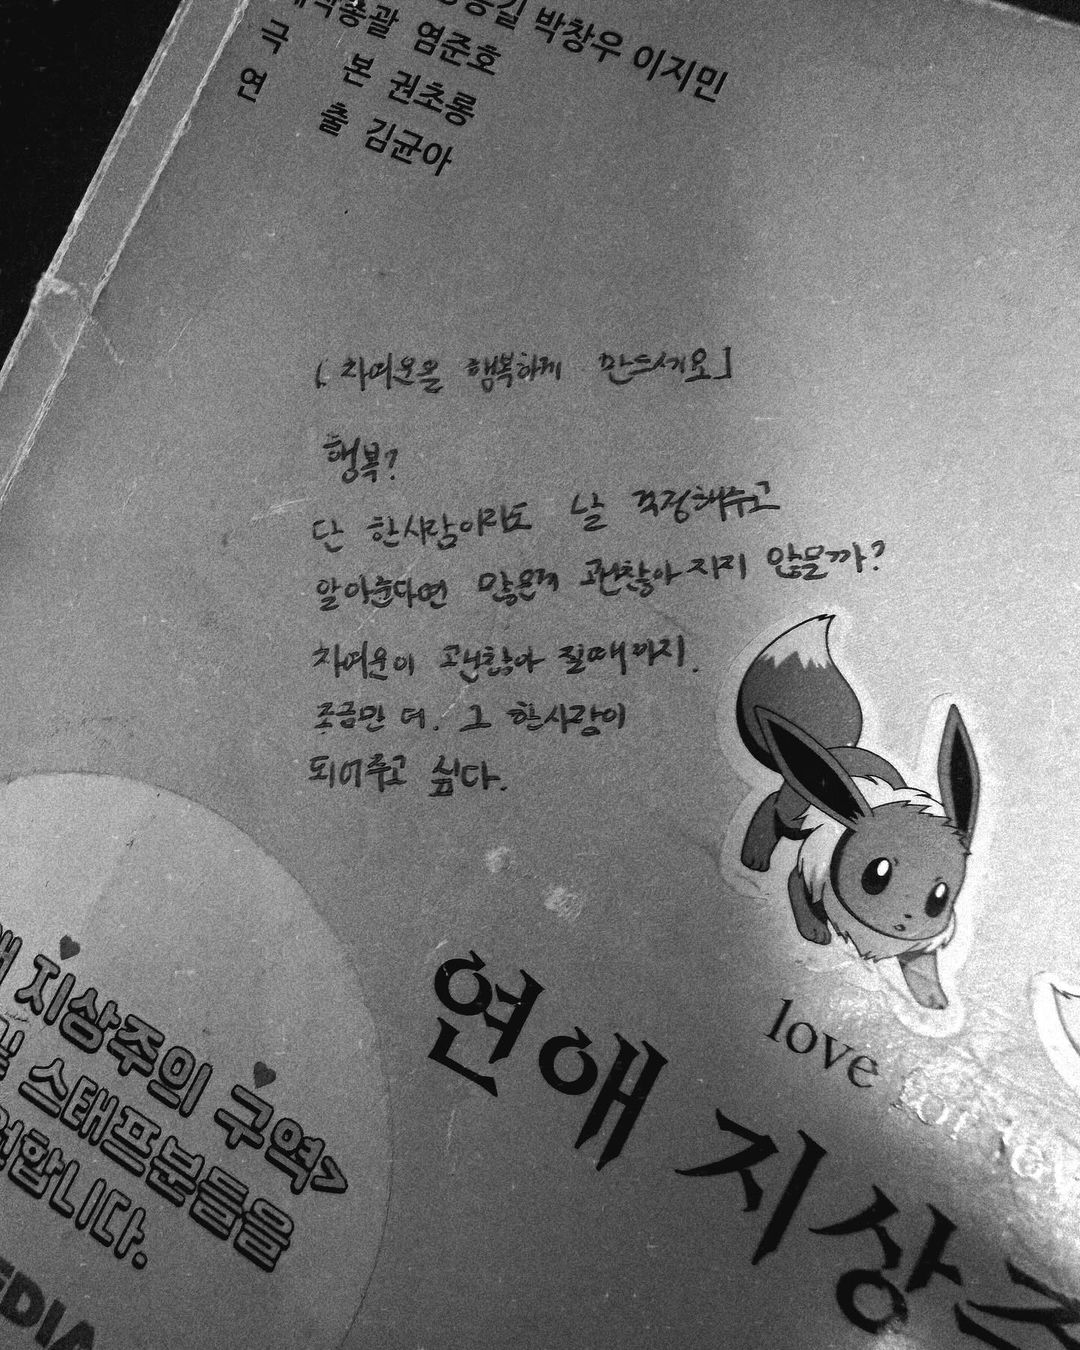 길 박창우 이지민
총괄 염준호
극 본 권초롱
연 출 김균아
[차여운을 행복하게 만드세요]
행복?
단 한사람이라도 날 걱정해주고
알아준다면 많은게 괜찮아지지 않을까?
차여운이 괜찮아 질때까지.
조금만 더. 그 한사람이
되어주고 싶다.
지상주의 구역>
스태프분들을
합니다.
EDIA
연애 지상주
love